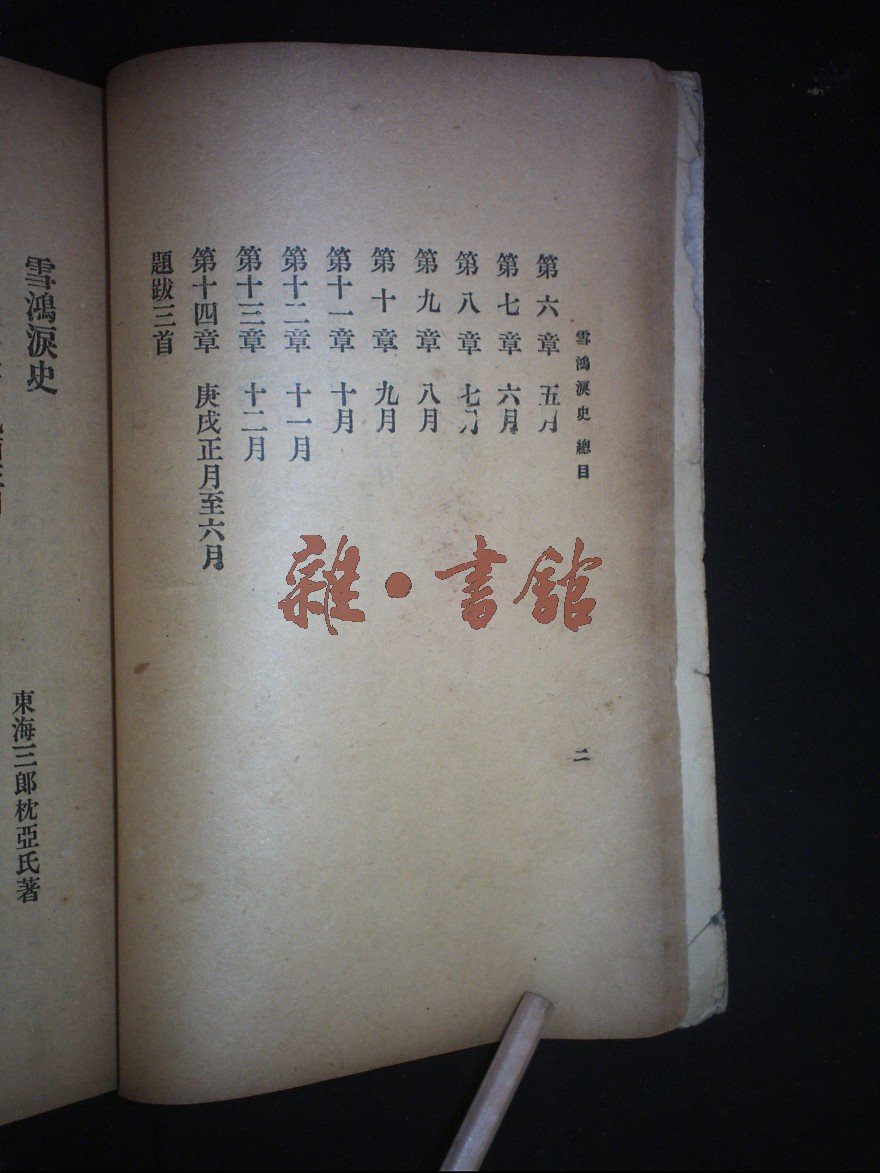 雪鴻淚史 總目
二
第六章 五月
第七章 六月
第八章 七月
第九章 八月
第十章 九月
第十一章 十月
第十二章 十一月
第十三章 十二月
第十四章 庚戌正月至六月
題跋三首
雜•書館
雪鴻淚史
東海三郎枕亞氏著